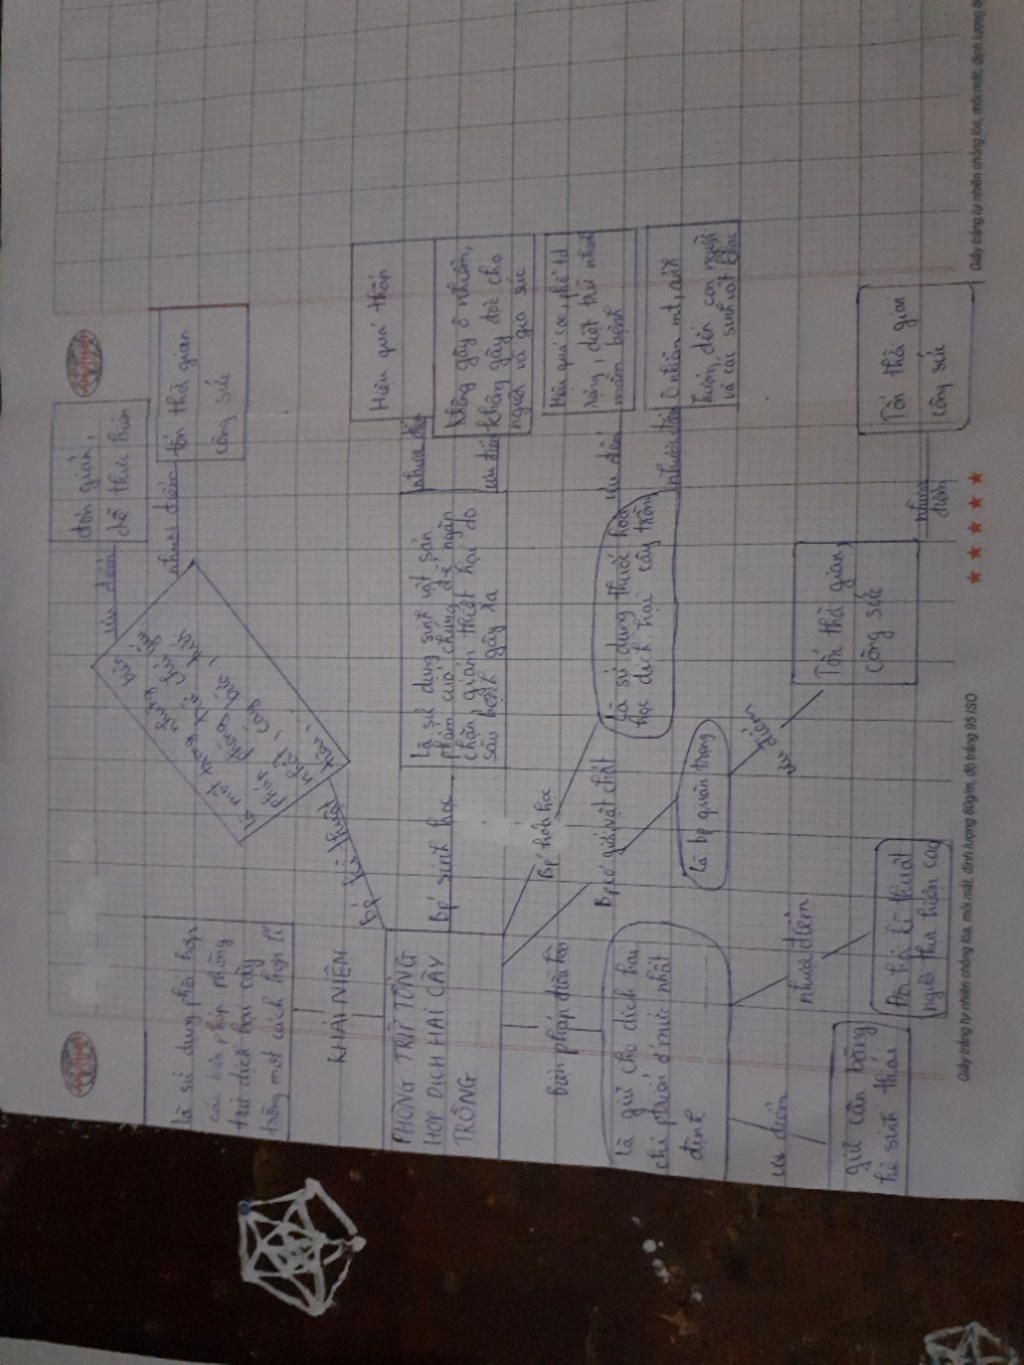 là sử dụng phối hợp
các biện pháp phòng
trừ dịch hại cây
trồng một cách hợp lí
KHÁI NIỆM
PHÒNG TRỪ TỔNG
HỢP DỊCH HẠI CÂY
TRỒNG
Bp kĩ thuật
ưu điểm
đơn giản,
dễ thực hiện
nhược điểm
tốn thời gian
công sức
Bp sinh học
là sử dụng sinh vật, sản
phẩm của chúng để ngăn
chặn, giảm thiệt hại do
sâu bệnh gây ra
nhược điểm
Hiệu quả thấp
ưu điểm
không gây ô nhiễm,
không gây độc cho
người và gia súc
Bp hóa học
là sử dụng thuốc hoá
học dịch hại cây trồng
ưu điểm
Hiệu quả cao, phổ td
rộng, diệt trừ nhanh
mầm bệnh
nhược điểm
Ô nhiễm mt, ảnh
hưởng đến con người
và các sinh vật khác
Bp cơ giới vật chất
là bp quan trọng
ưu điểm
Tốn thời gian,
công sức
nhược
điểm
Tốn thời gian
công sức
Biện pháp điều hòa
là giữ cho dịch hại
chỉ phát ở mức nhất
định
ưu điểm
giữ cân bằng
hệ sinh thái
nhược điểm
kĩ thuật
người thực hiện cao
Giấy trắng tự nhiên chống lóa, mỏi mắt, định lượng 80g/m, độ trắng 95 ISO
Giấy trắng tự nhiên chống lóa, mỏi mắt, định lượng